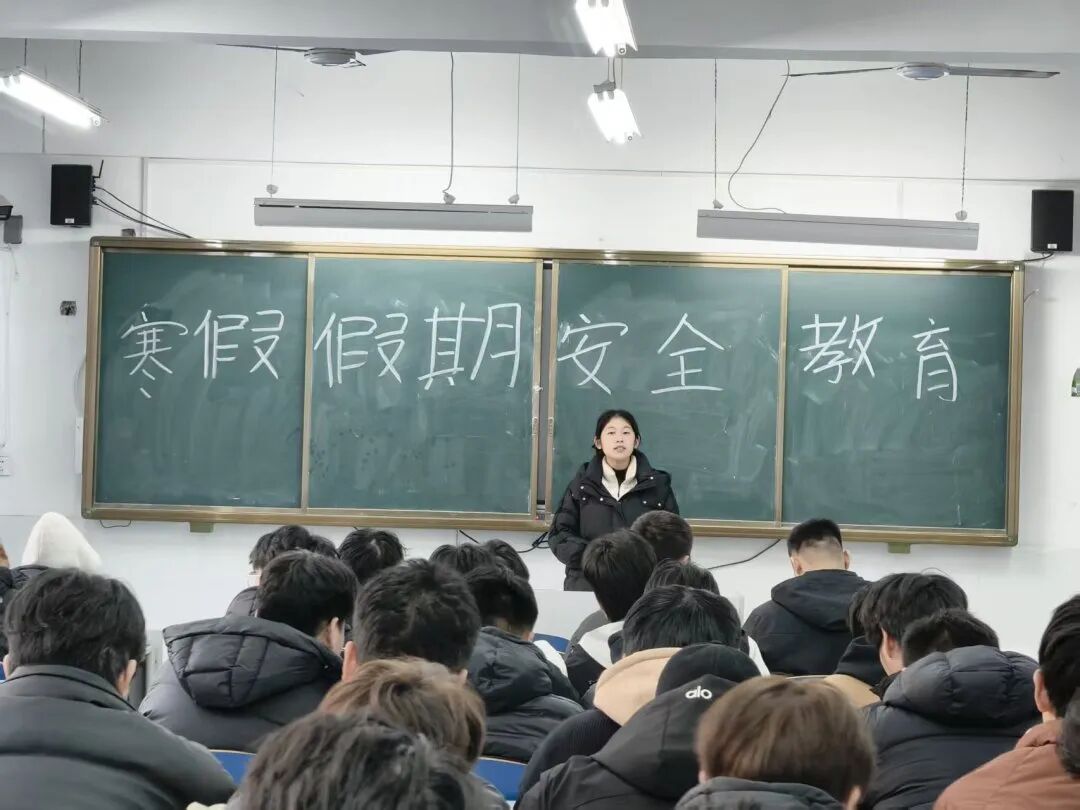 寒假假期安全教育
alo